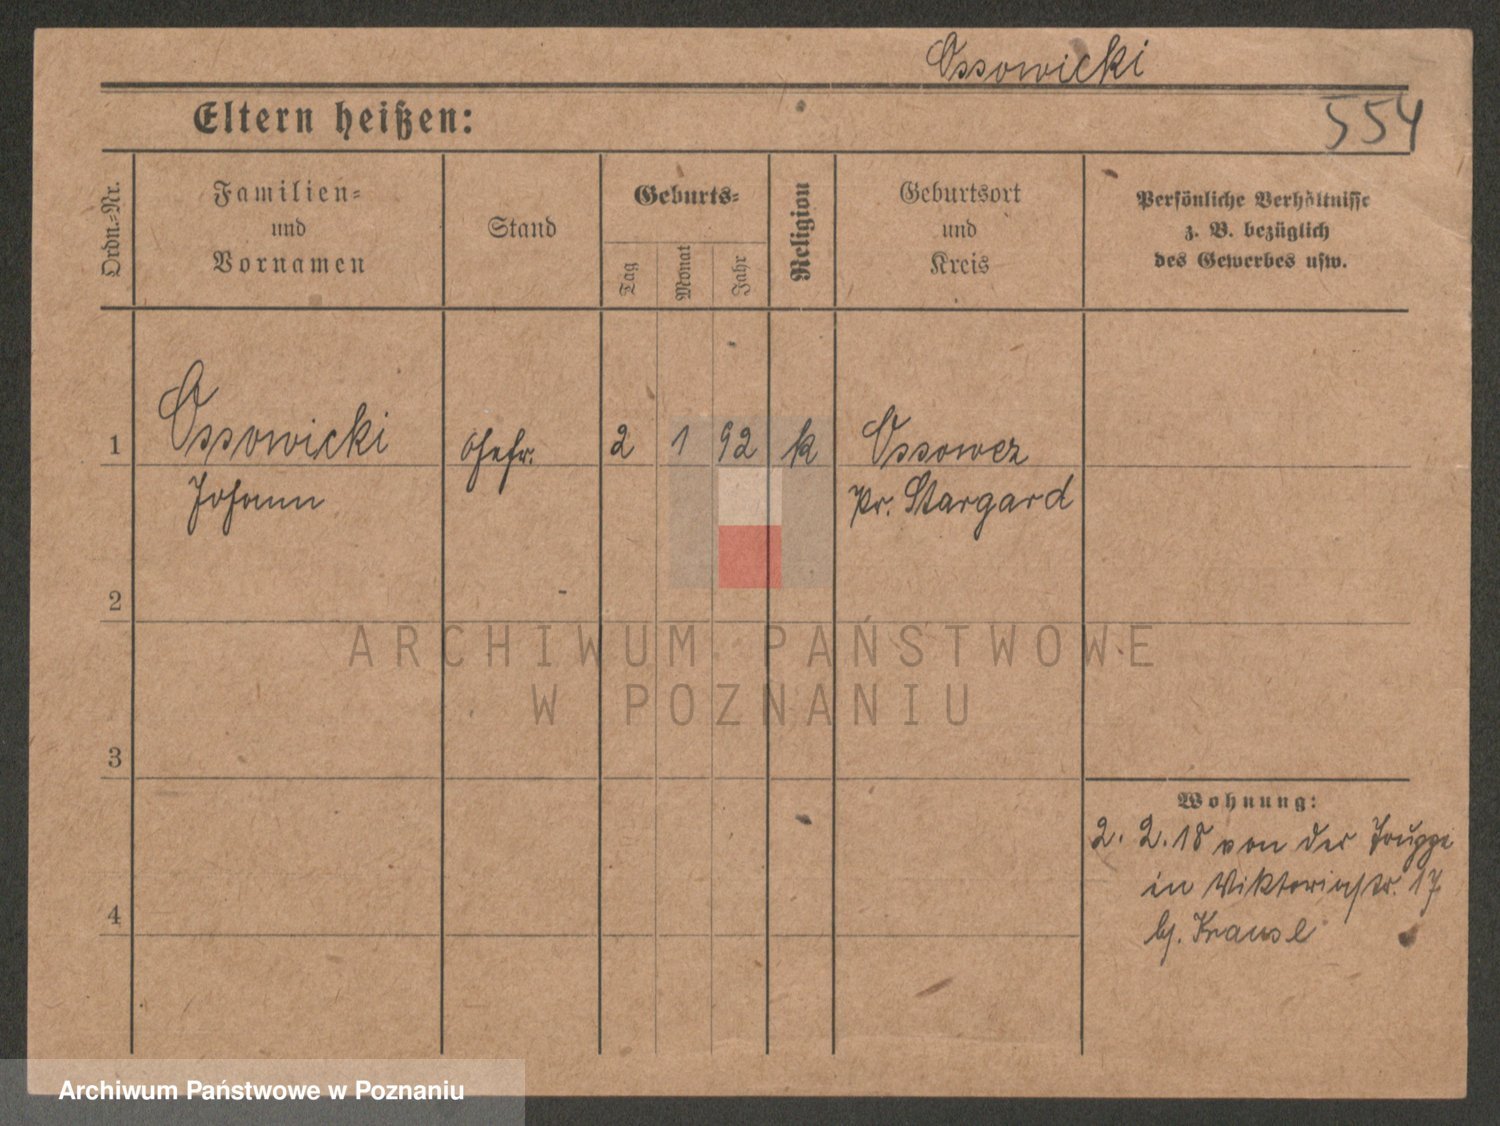 Ossowicki
Eltern heißen:
554
Ordn.-Nr.
Familien-
und
Vornamen
Stand
Geburts-
Tag
Monat
Jahr
Religion
Geburtsort
und
Kreis
Persönliche Verhältnisse
z. B. bezüglich
des Gewerbes usw.
1 Ossowicki 2 1 92 k Ossowez
Johann Pr. Stargard
2
3
4
Wohnung:
2. 2. 18 von der Truppe
in Viktoriastr. 17
b.
ARCHIWUM PAŃSTWOWE
W POZNANIU
Archiwum Państwowe w Poznaniu